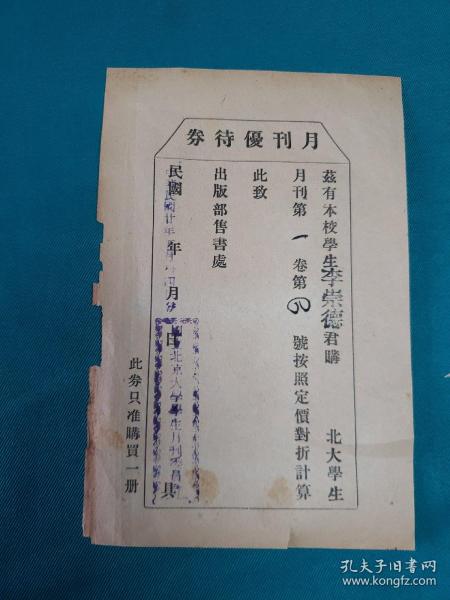 月刊優待券
茲有本校學生李崇德君購 北大學生
月刊第一卷第四號按照定價對折計算
此致
出版部售書處
民國 年 月 日 具
北京大學學生月刊委員會
此券只准購買一册
孔夫子旧书网
www.kongfz.com